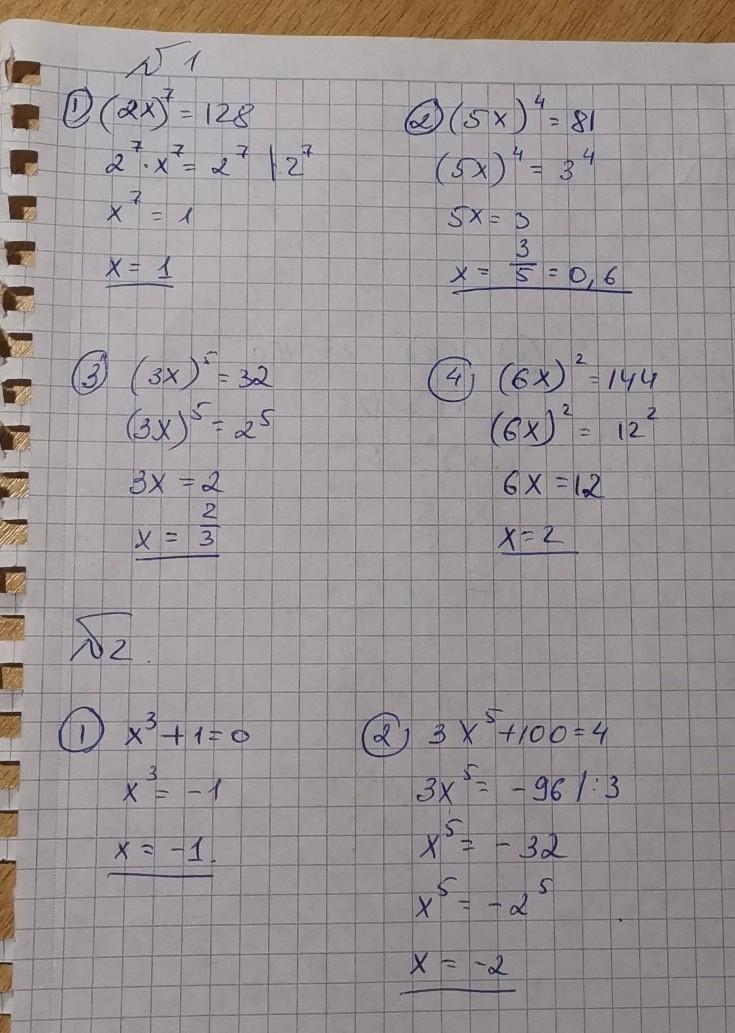 №1
① (2x)⁷ = 128
2⁷ · x⁷ = 2⁷ |:2⁷
x⁷ = 1
x = 1
② (5x)⁴ = 81
(5x)⁴ = 3⁴
5x = 3
x = 3/5 = 0,6
③ (3x)⁵ = 32
(3x)⁵ = 2⁵
3x = 2
x = 2/3
④ (6x)² = 144
(6x)² = 12²
6x = 12
x = 2
№2.
① x³ + 1 = 0
x³ = -1
x = -1.
② 3x⁵ + 100 = 4
3x⁵ = -96 /:3
x⁵ = -32
x⁵ = -2⁵
x = -2